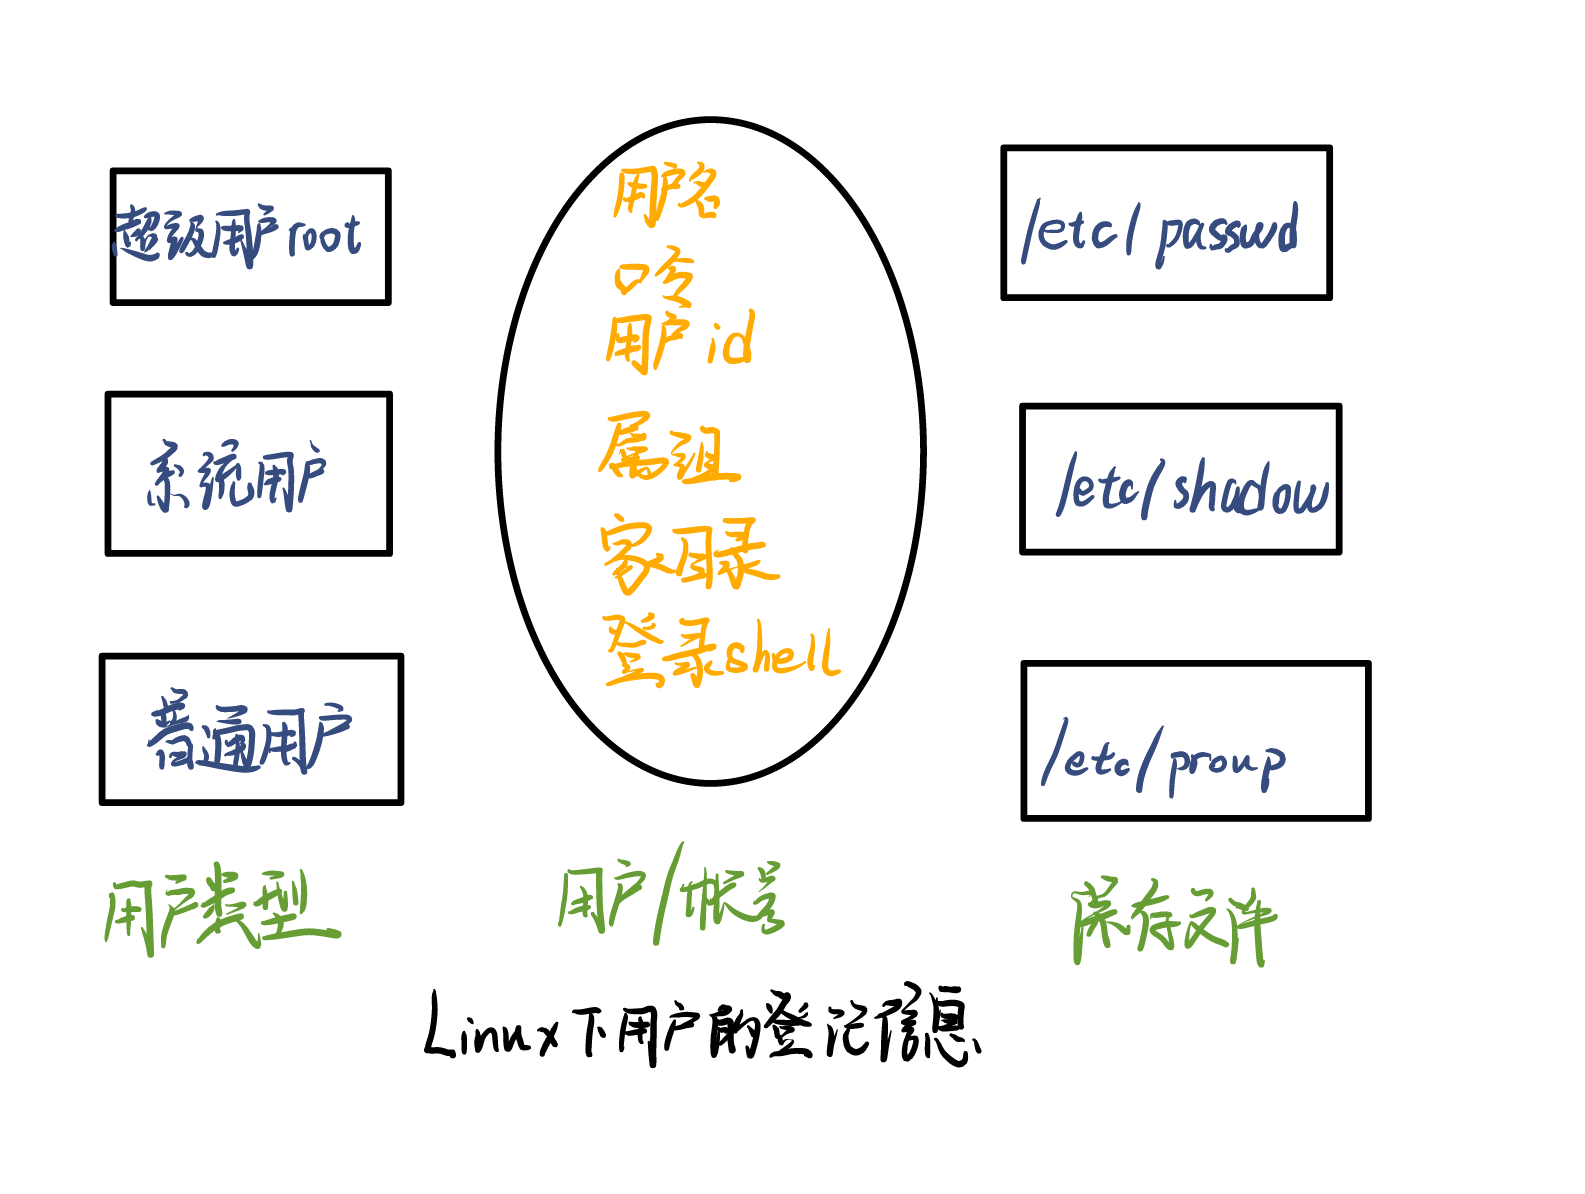 超级用户root
系统用户
普通用户
用户类型
用户名
口令
用户id
属组
家目录
登录shell
用户/帐号
/etc/passwd
/etc/shadow
/etc/proup
保存文件
Linux下用户的登记信息